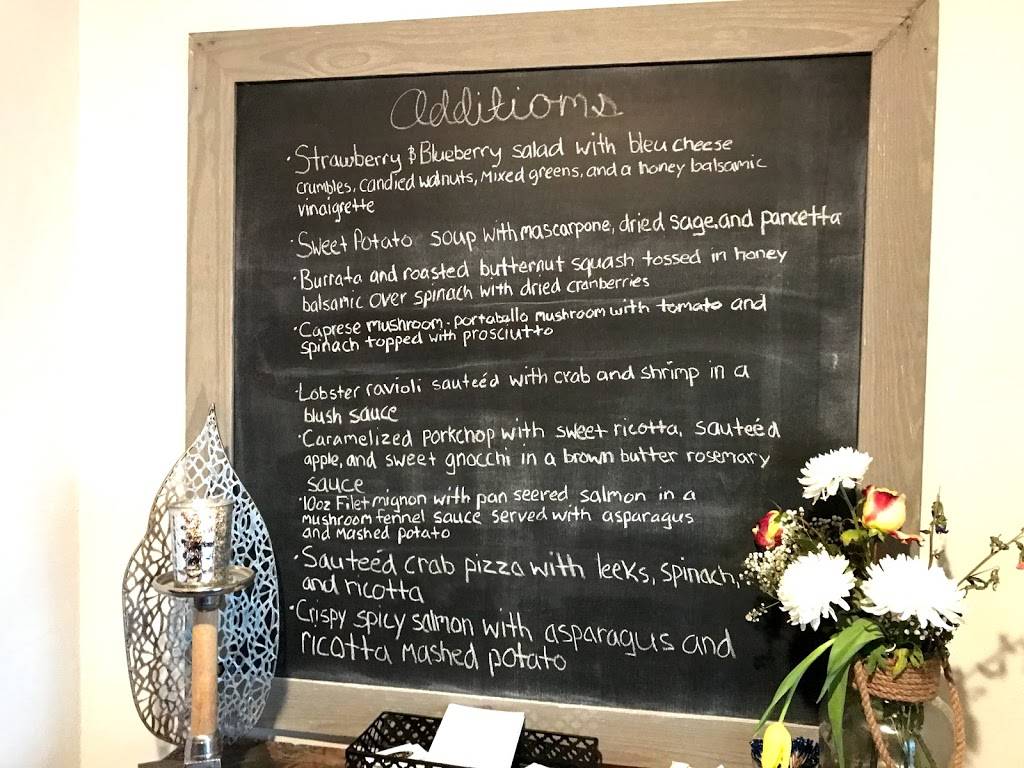 Additions
· Strawberry & Blueberry salad with bleu cheese
crumbles, candied walnuts, Mixed greens, and a honey balsamic
vinaigrette
· Sweet Potato soup with mascarpone, dried sage, and pancetta
· Burrata and roasted butternut squash tossed in honey
balsamic over spinach with dried cranberries
· Caprese mushroom - portabello mushroom with tomato and
spinach topped with prosciutto
· Lobster ravioli sauteéd with crab and shrimp in a
blush sauce
· Caramelized porkchop with sweet ricotta, sauteéd
apple, and sweet gnocchi in a brown butter rosemary
sauce
· 10oz Filet mignon with pan seered salmon in a
mushroom fennel sauce served with asparagus
and mashed potato
· Sauteéd crab pizza with leeks, spinach,
and ricotta
· Crispy spicy salmon with asparagus and
ricotta mashed potato